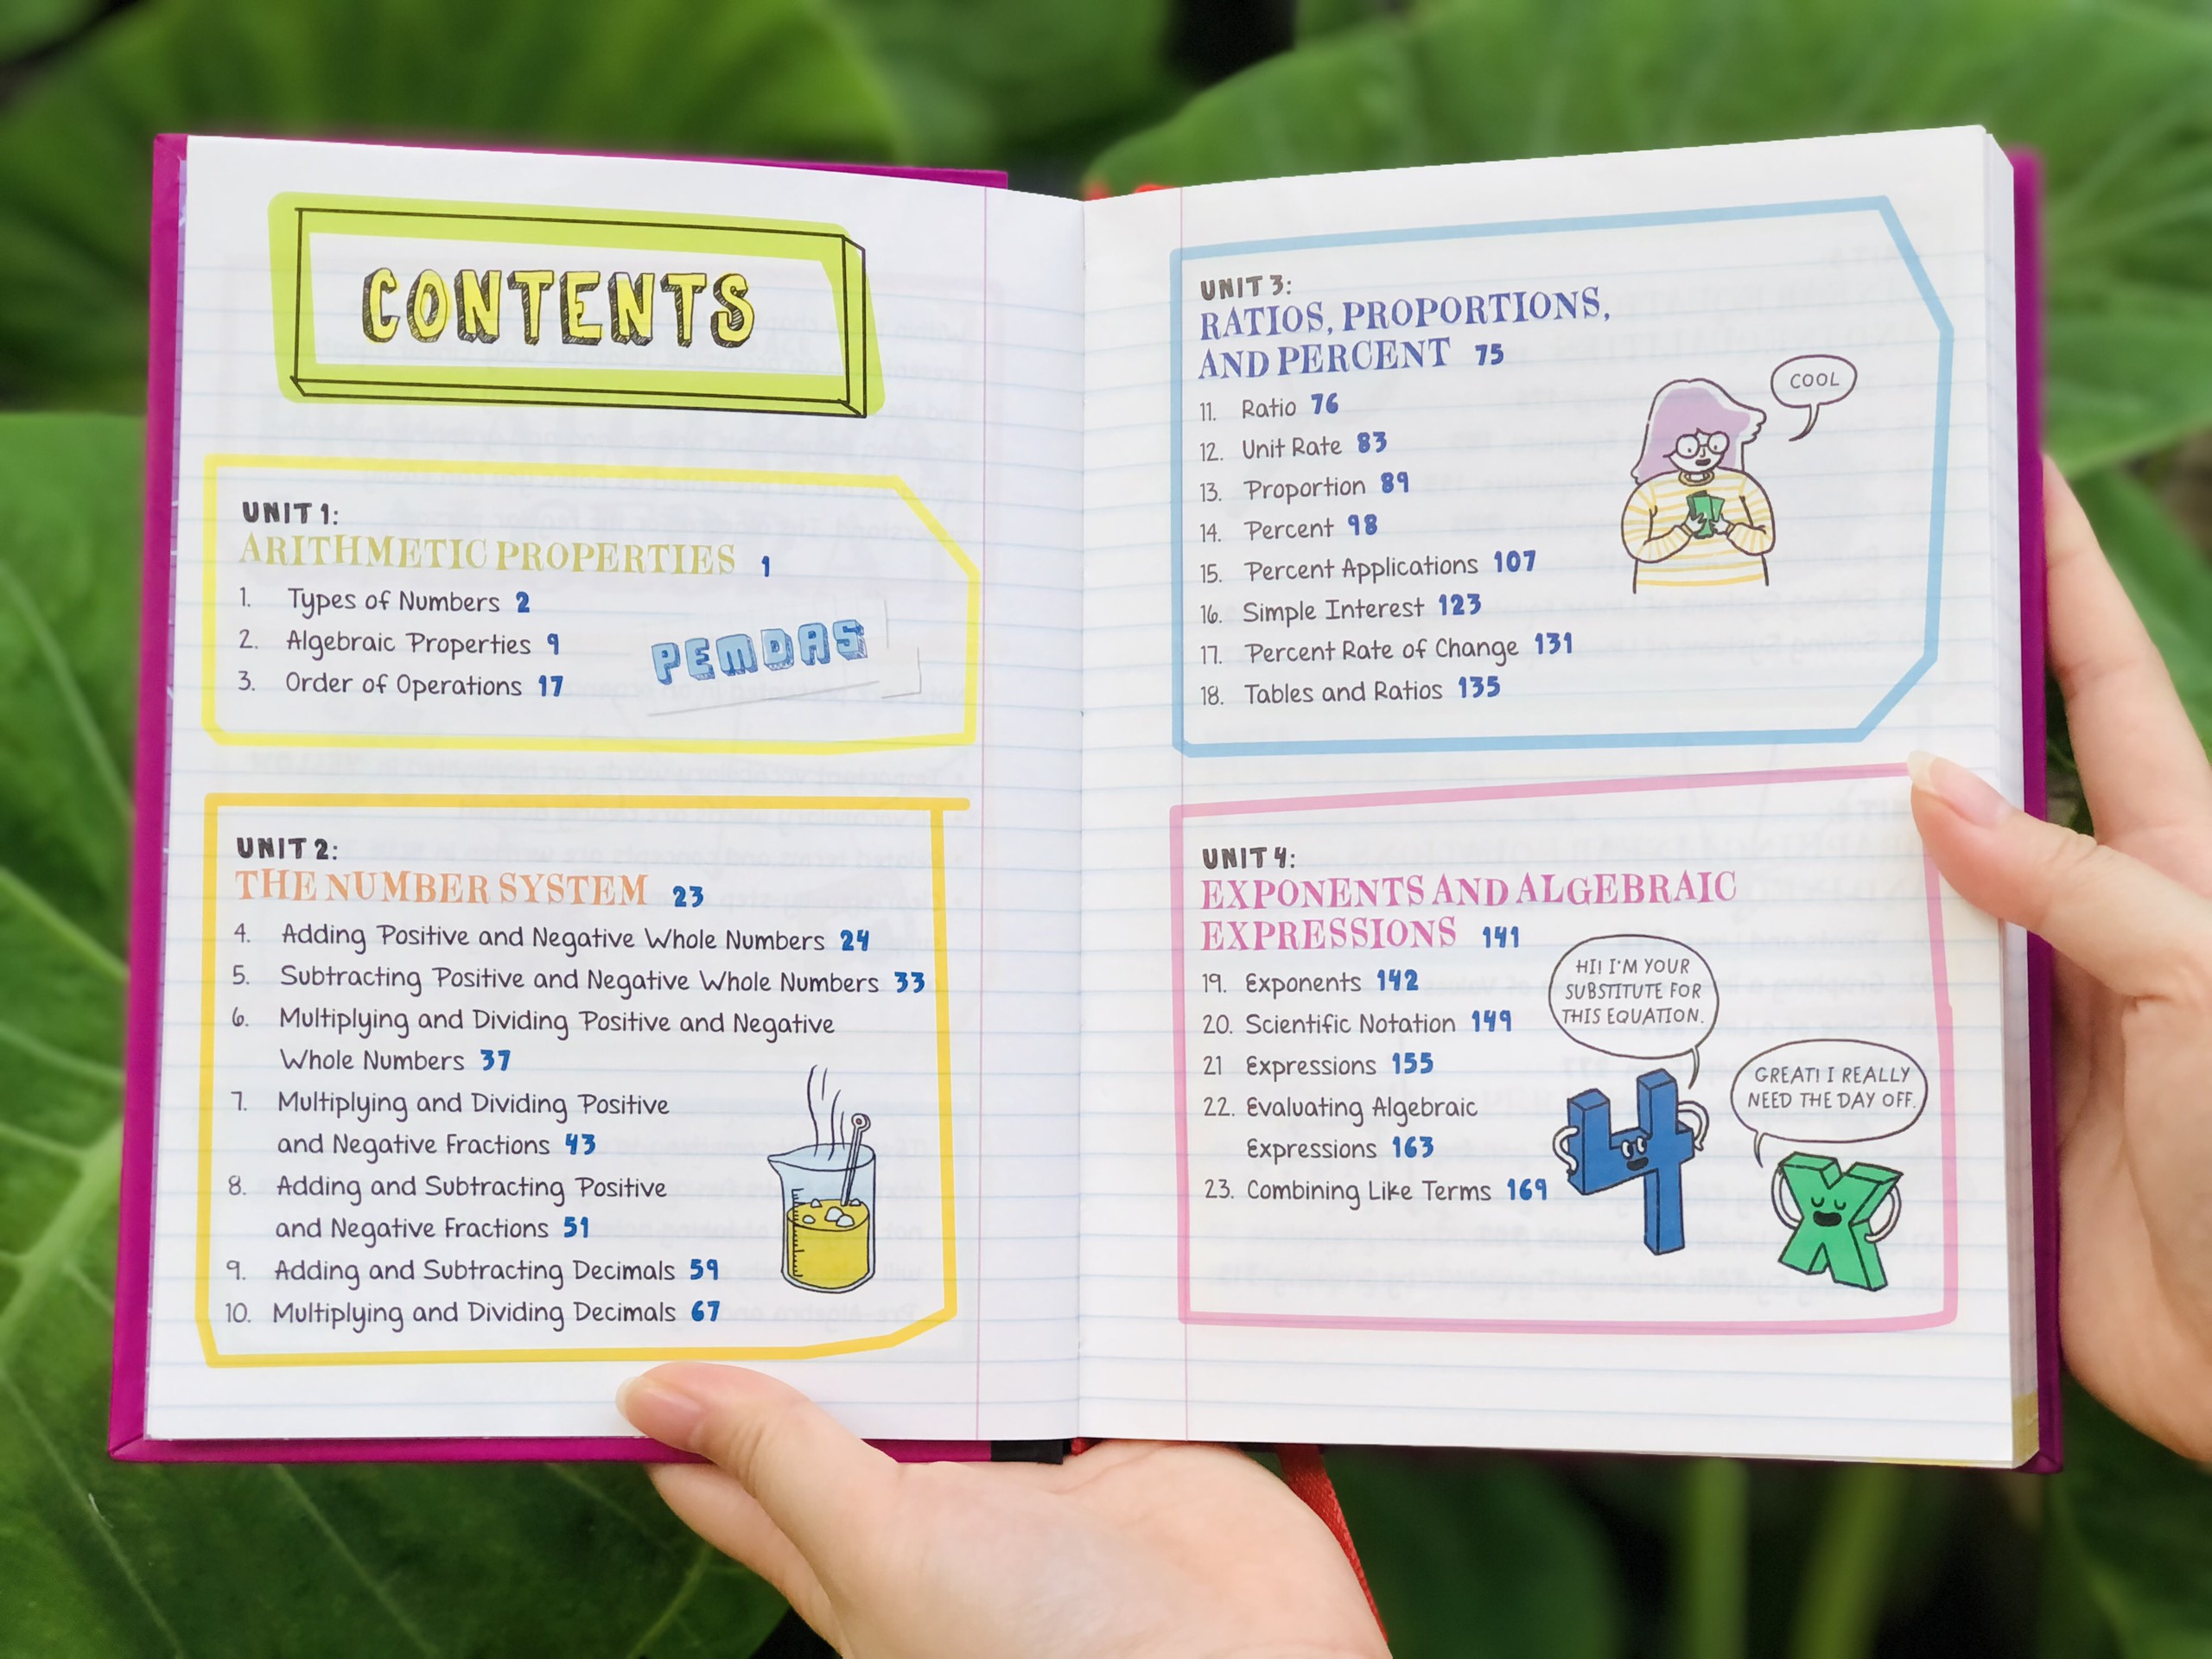 CONTENTS
UNIT 1:
ARITHMETIC PROPERTIES 1
1. Types of Numbers 2
2. Algebraic Properties 9
3. Order of Operations 17
PEMDAS
UNIT 2:
THE NUMBER SYSTEM 23
4. Adding Positive and Negative Whole Numbers 24
5. Subtracting Positive and Negative Whole Numbers 33
6. Multiplying and Dividing Positive and Negative
Whole Numbers 37
7. Multiplying and Dividing Positive
and Negative Fractions 43
8. Adding and Subtracting Positive
and Negative Fractions 51
9. Adding and Subtracting Decimals 59
10. Multiplying and Dividing Decimals 67
UNIT 3:
RATIOS, PROPORTIONS,
AND PERCENT 75
11. Ratio 76
12. Unit Rate 83
13. Proportion 89
14. Percent 98
15. Percent Applications 107
16. Simple Interest 123
17. Percent Rate of Change 131
18. Tables and Ratios 135
COOL
UNIT 4:
EXPONENTS AND ALGEBRAIC
EXPRESSIONS 141
19. Exponents 142
20. Scientific Notation 149
21 Expressions 155
22. Evaluating Algebraic
Expressions 163
23. Combining Like Terms 169
HI! I'M YOUR
SUBSTITUTE FOR
THIS EQUATION.
GREAT! I REALLY
NEED THE DAY OFF.
4
X